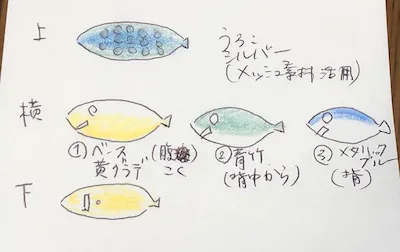 上
うろこ
シルバー
(メッシュ素材 活用)
横
① ベース
黄グラデ
(腹
こく)
② 青竹
(背中から)
③ メタリック
ブルー
(背)
下